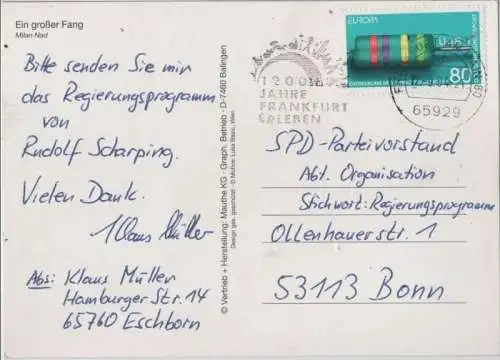 Ein großer Fang
Milan Nad
Bitte senden Sie mir
das Regierungsprogramm
von
Rudolf Scharping.
Vielen Dank.
Klaus Müller
Abs: Klaus Müller
Hamburger Str. 14
65760 Eschborn
© Vertrieb + Herstellung: Mauthe KG · Graph. Betrieb · D-7460 Balingen
EUROPA
80
1200
JAHRE
FRANKFURT
ERLEBEN
65929
SPD-Parteivorstand
Abt. Organisation
Stichwort: Regierungsprogramm
Ollenhauerstr. 1
53113 Bonn